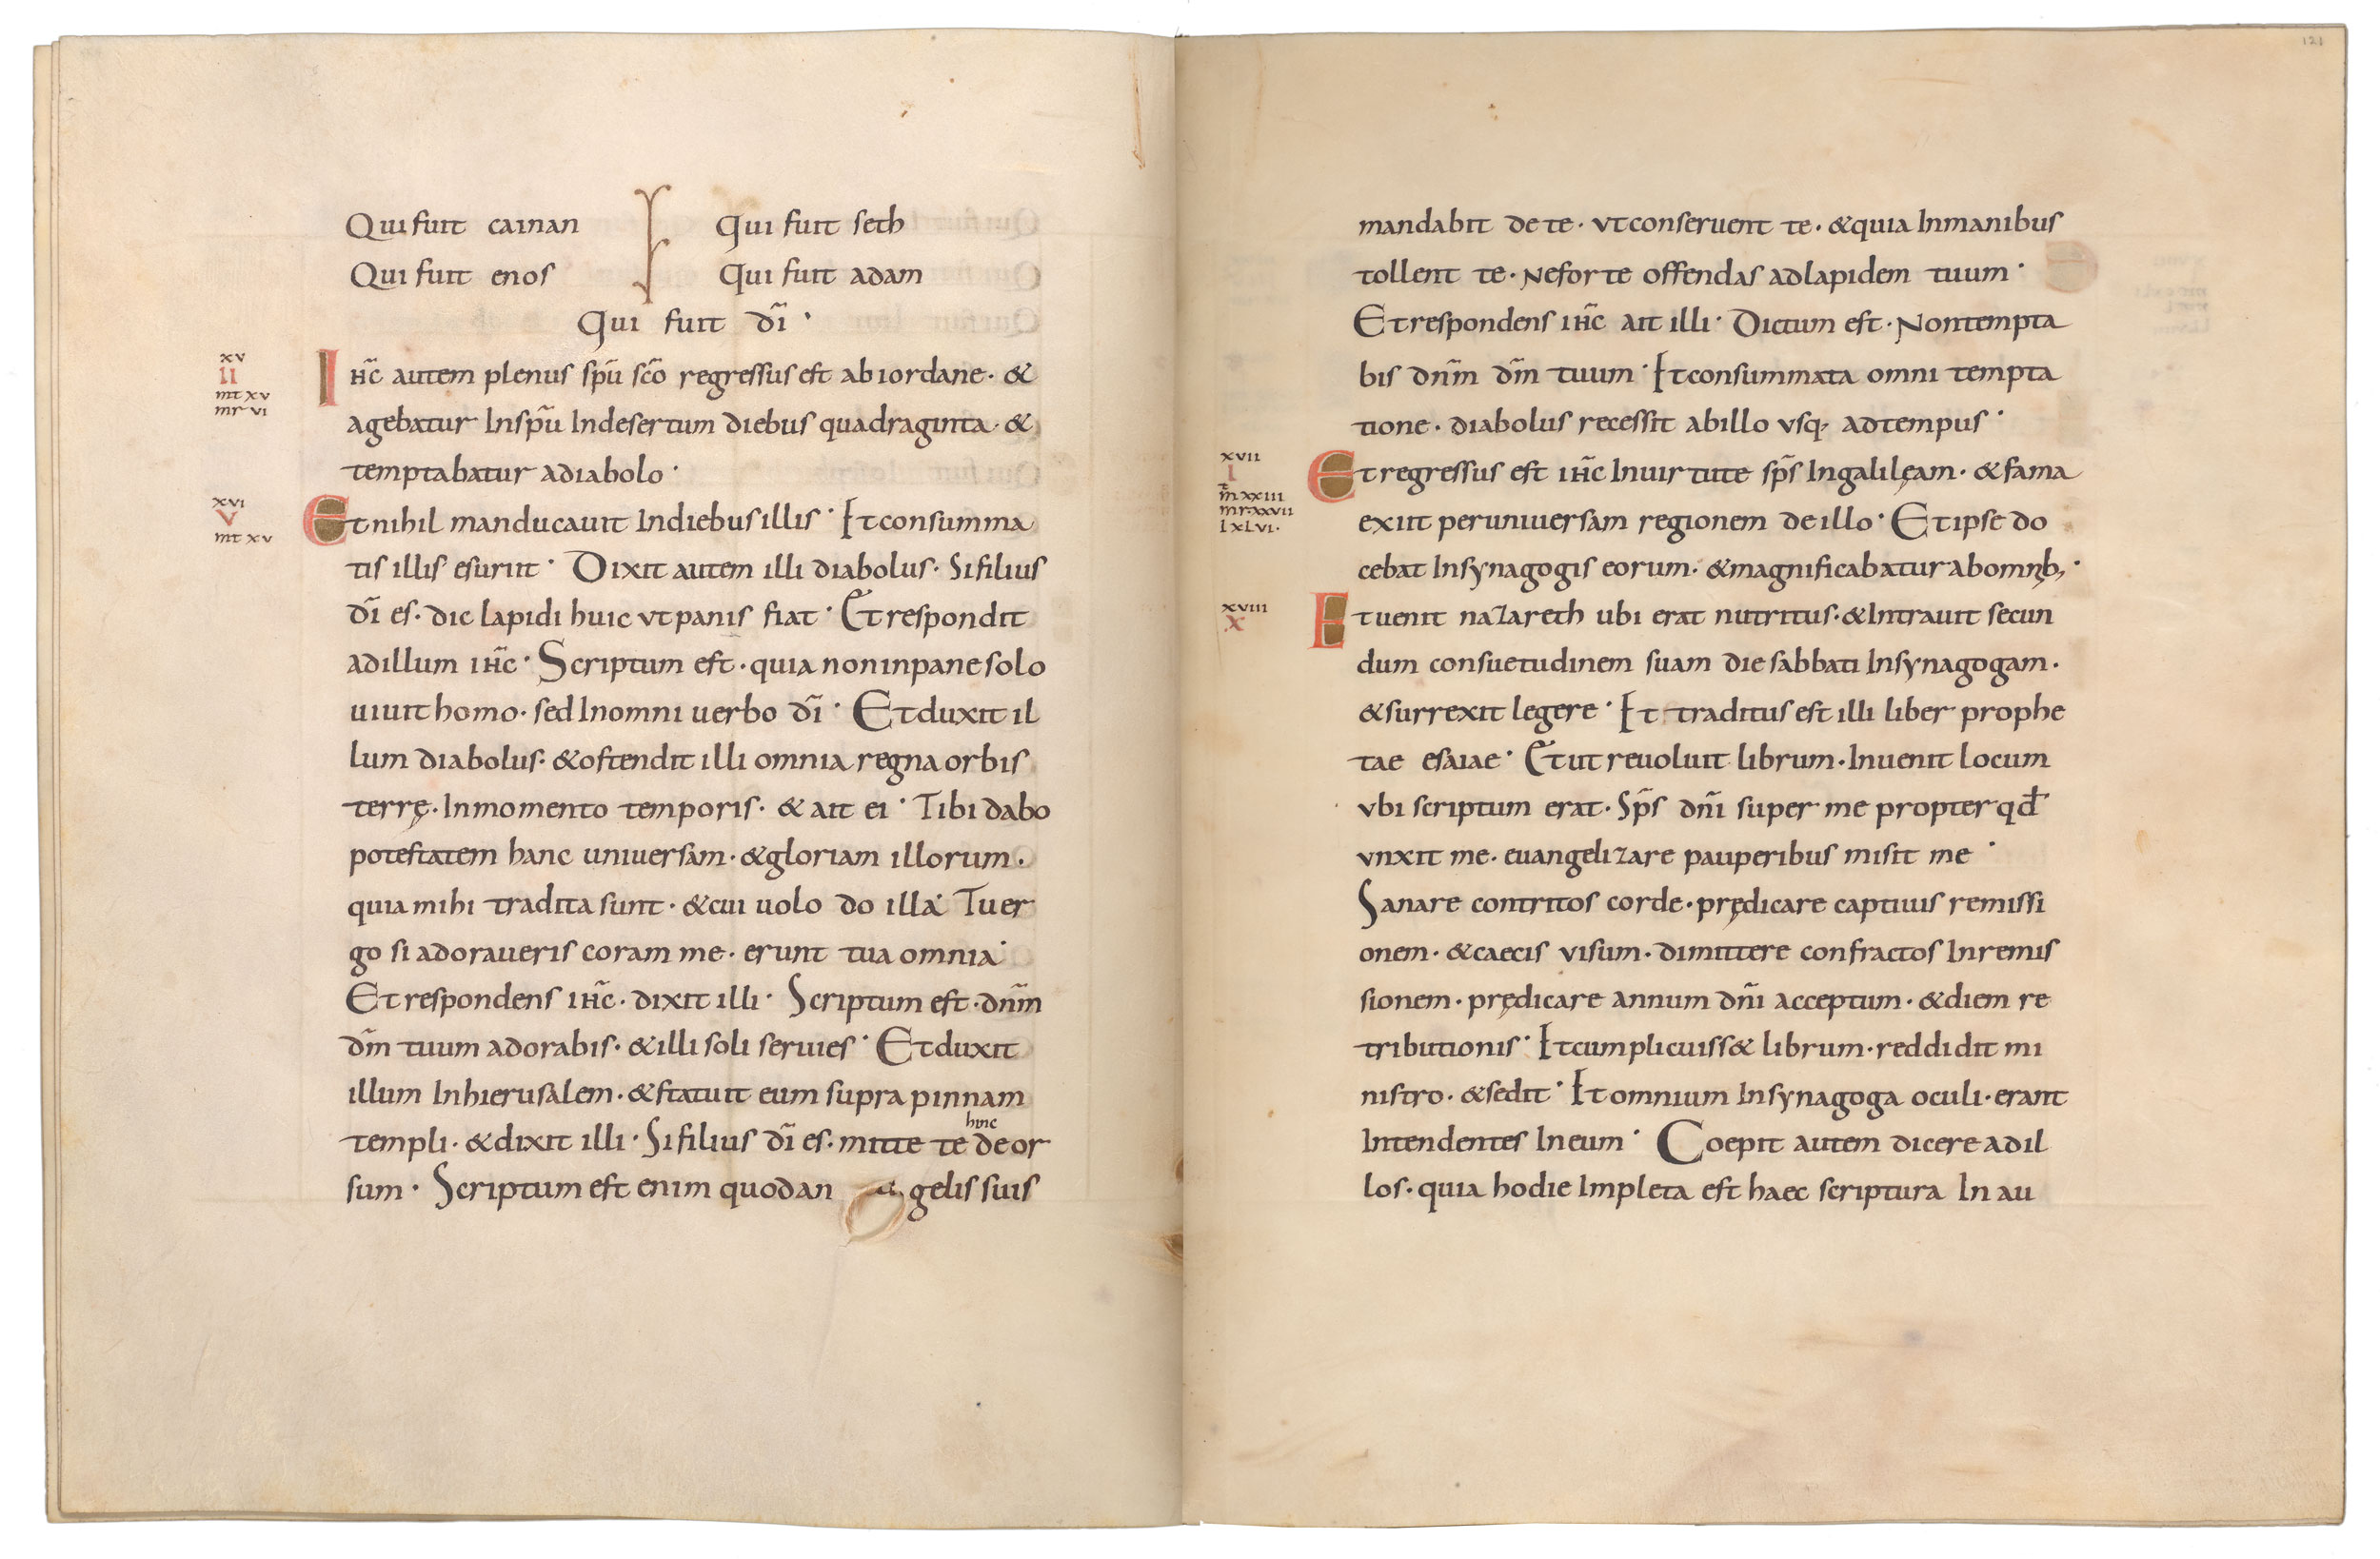 Qui fuit cainan Qui fuit seth
Qui fuit enos Qui fuit adam
Qui fuit dī ·
xv
II
mt xv
mr vi
IHC̄ autem plenus spū scō regressus est ab iordane · &
agebatur In spū In desertum diebus quadraginta · &
temptabatur a diabolo ·
xvi
V
mt xv
Et nihil manducauit In diebus illis · Et consumma
tis illis esuriit · Dixit autem illi diabolus · Si filius
dī es · dic lapidi huic vt panis fiat · Et respondit
ad illum IHC̄ · Scriptum est · quia non in pane solo
uiuit homo · sed In omni uerbo dī · Et duxit il
lum diabolus · & ostendit illi omnia regna orbis
terrę · In momento temporis · & ait ei · Tibi dabo
potestatem hanc uniuersam · & gloriam illorum ·
quia mihi tradita sunt · & cui uolo do illa · Tu er
go si adoraueris coram me · erunt tua omnia ·
Et respondens IHC̄ · dixit illi · Scriptum est · dnm̄
dm̄ tuum adorabis · & illi soli seruies · Et duxit
illum In hierusalem · & statuit eum supra pinnam
hinc
templi · & dixit illi · Si filius dī es · mitte te deor
sum · Scriptum est enim quod an gelis suis
121
mandabit de te · vt conseruent te · & quia In manibus
tollent te · Ne forte offendas ad lapidem tuum ·
Et respondens IHC̄ ait illi · Dictum est · Non tempta
bis dnm̄ dm̄ tuum · Et consummata omni tempta
tione · diabolus recessit ab illo vsq; ad tempus ·
xvii
I
m xxiii
mr xxvii
l xlvi ·
Et regressus est IHC̄ In uirtute sps̄ In galilęam · & fama
exiit per uniuersam regionem de illo · Et ipse do
cebat In synagogis eorum · & magnificabatur ab omnib; ·
xviii
X
Et uenit nazareth ubi erat nutritus · & Intrauit secun
dum consuetudinem suam die sabbati In synagogam ·
& surrexit legere · Et traditus est illi liber prophe
tae esaiae · Et ut reuoluit librum · Inuenit locum
vbi scriptum erat · Sps̄ dnī super me propter qđ
vnxit me · euangelizare pauperibus misit me ·
Sanare contritos corde · prędicare captiuis remissi
onem · & caecis visum · dimittere confractos In remis
sionem · prędicare annum dnī acceptum · & diem re
tributionis · Et cum plicuiss& librum · reddidit mi
nistro · & sedit · Et omnium In synagoga oculi · erant
Intendentes In eum · Coepit autem dicere ad il
los · quia hodie Impleta est haec scriptura In au